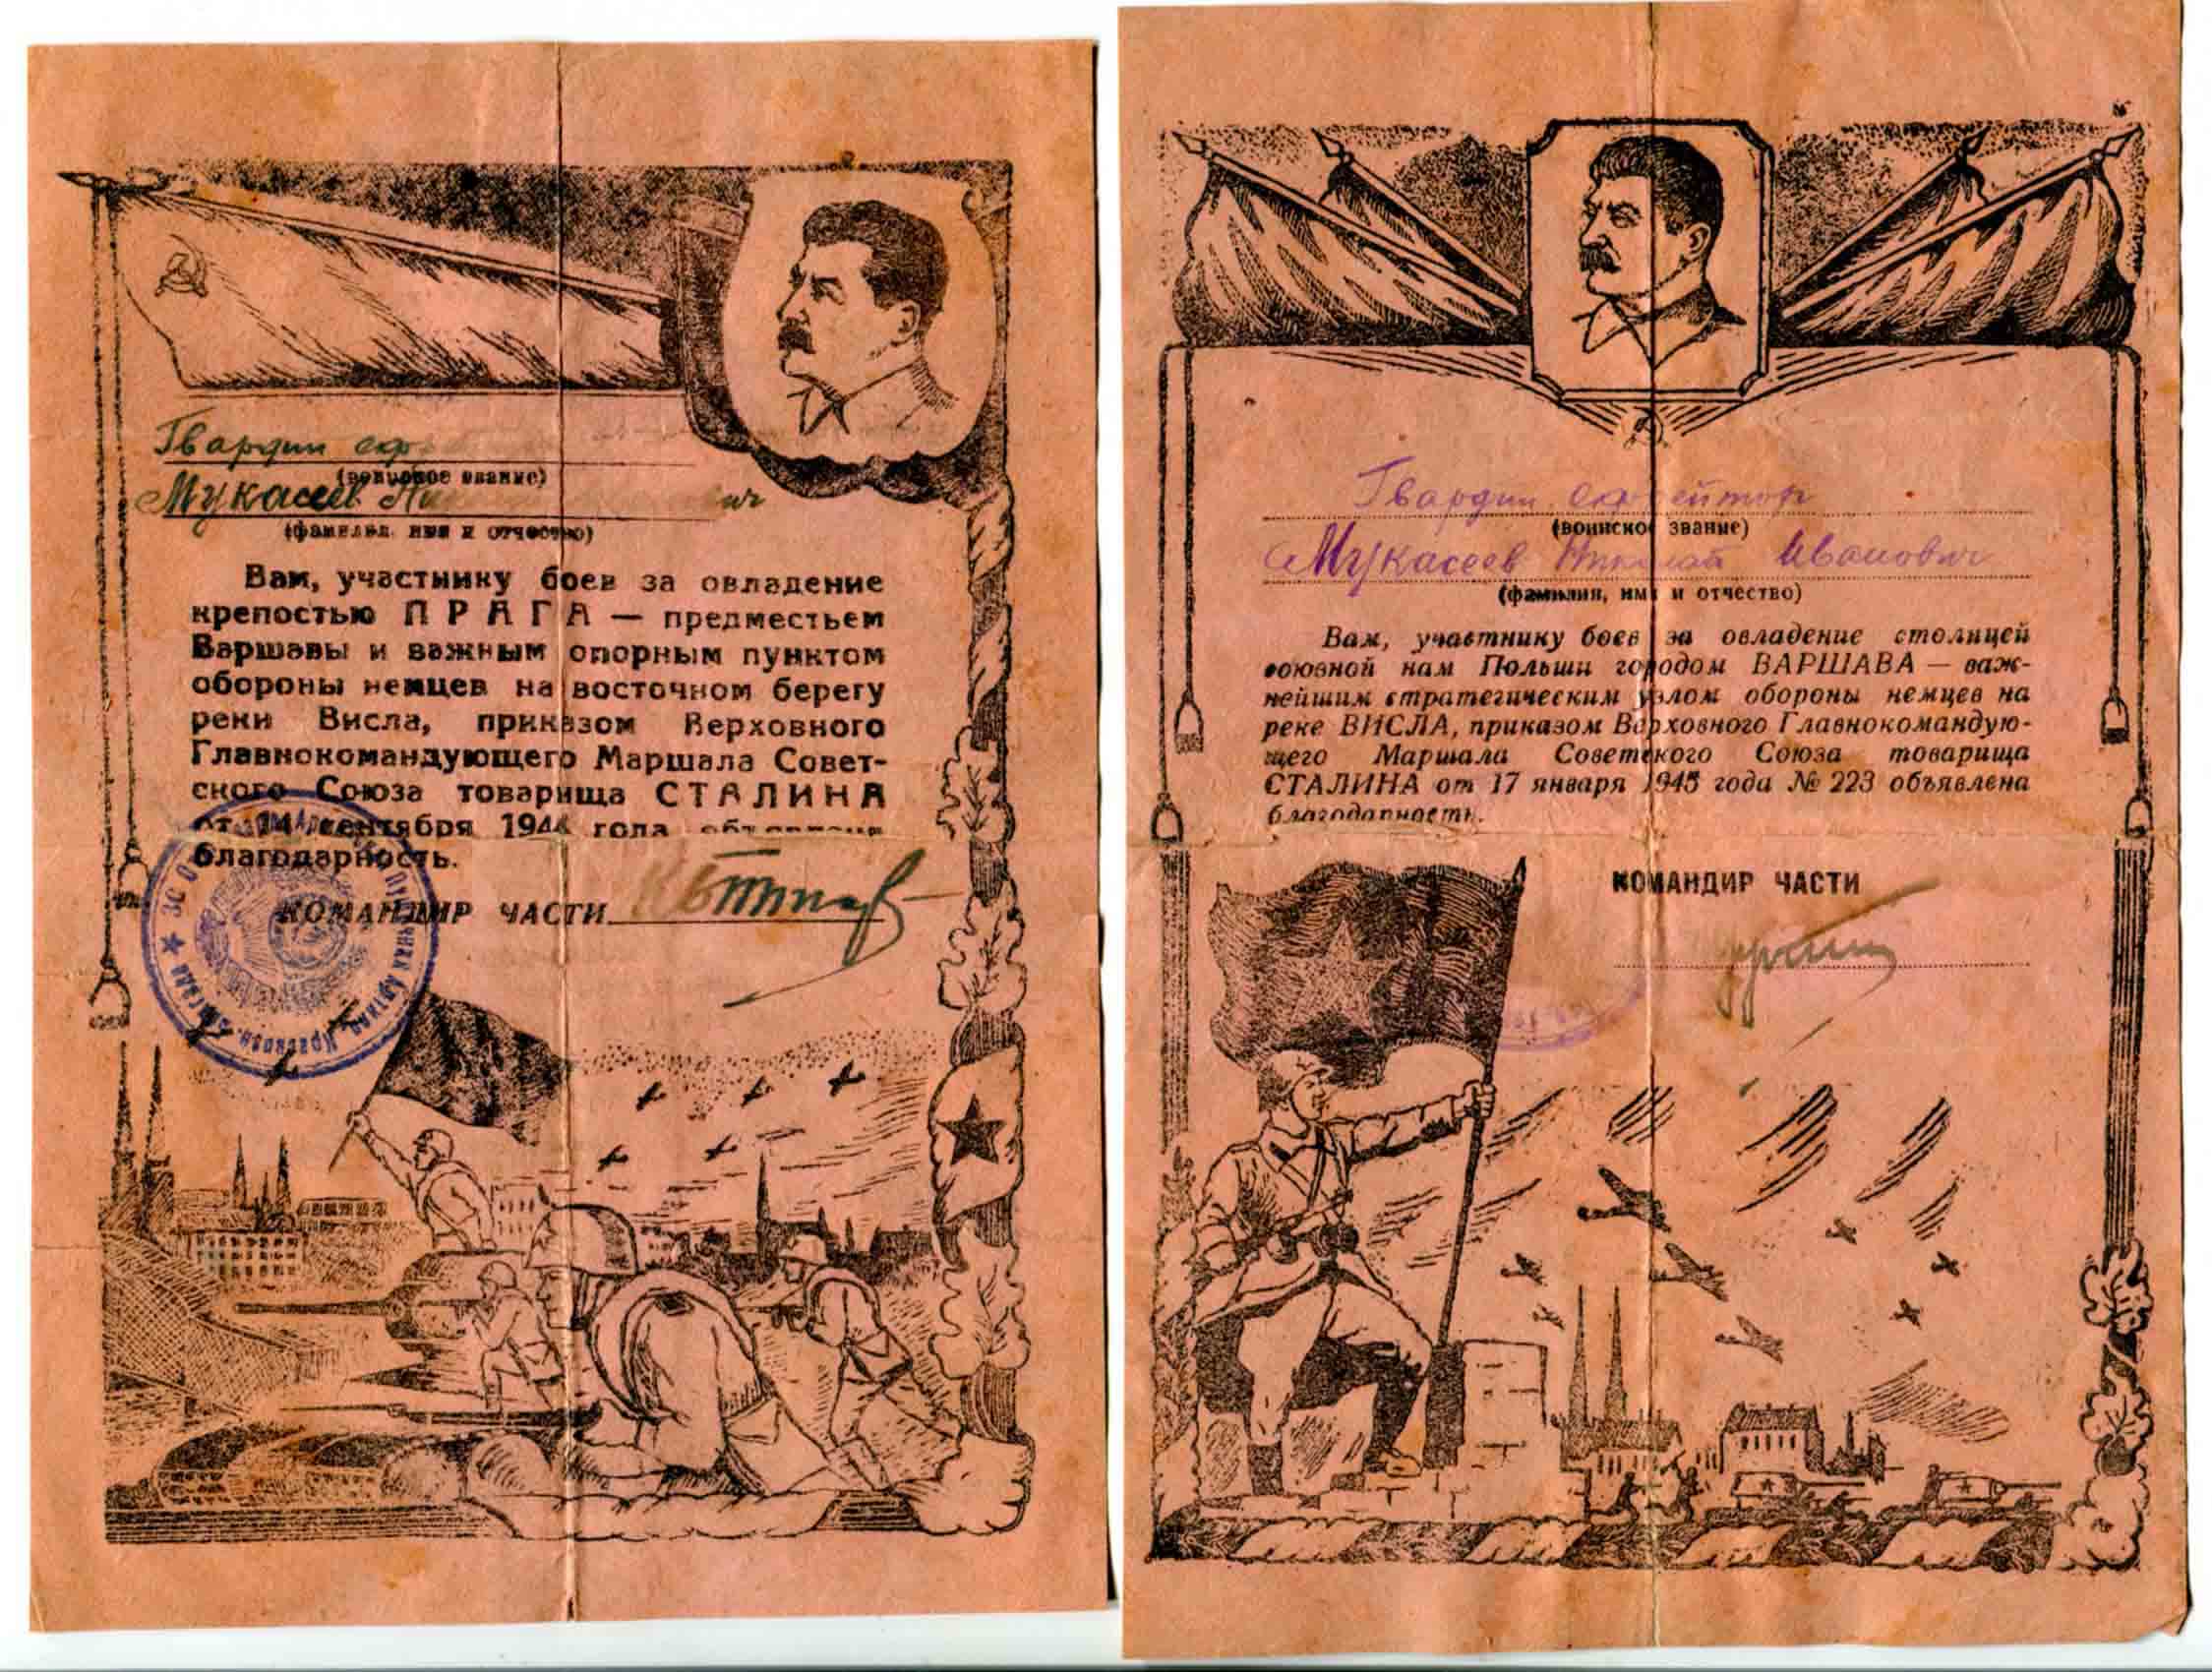 Гвардии
(воинское звание)
Мукасеев
(фамилия, имя и отчество)
Вам, участнику боев за овладение
крепостью ПРАГА — предместьем
Варшавы и важным опорным пунктом
обороны немцев на восточном берегу
реки Висла, приказом Верховного
Главнокомандующего Маршала Совет-
ского Союза товарища СТАЛИНА
от 14 сентября 1944 года объявлена
благодарность.
КОМАНДИР ЧАСТИ
Гвардии ефрейтор
(воинское звание)
Мукасеев Николай Иванович
(фамилия, имя и отчество)
Вам, участнику боев за овладение столицей
союзной нам Польши городом ВАРШАВА — важ-
нейшим стратегическим узлом обороны немцев на
реке ВИСЛА, приказом Верховного Главнокомандую-
щего Маршала Советского Союза товарища
СТАЛИНА от 17 января 1945 года № 223 объявлена
благодарность.
КОМАНДИР ЧАСТИ